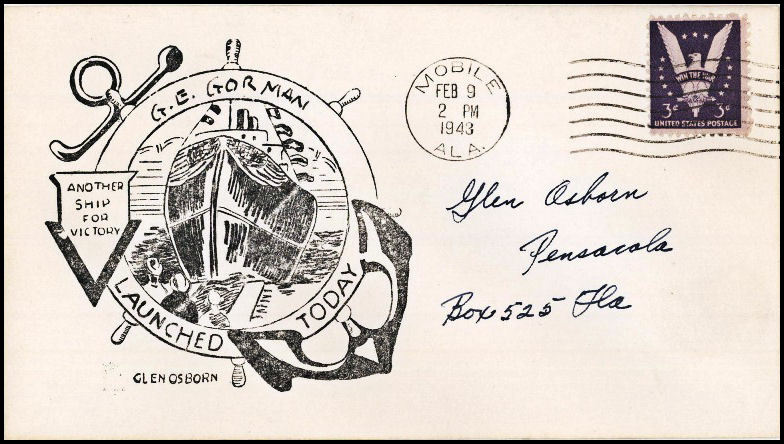 G.E. GORMAN
ANOTHER
SHIP
FOR
VICTORY
LAUNCHED TODAY
GLEN OSBORN
MOBILE
FEB 9
2 PM
1943
ALA.
WIN THE WAR
3¢ 3¢
UNITED STATES POSTAGE
Glen Osborn
Pensacola
Box 525 Fla